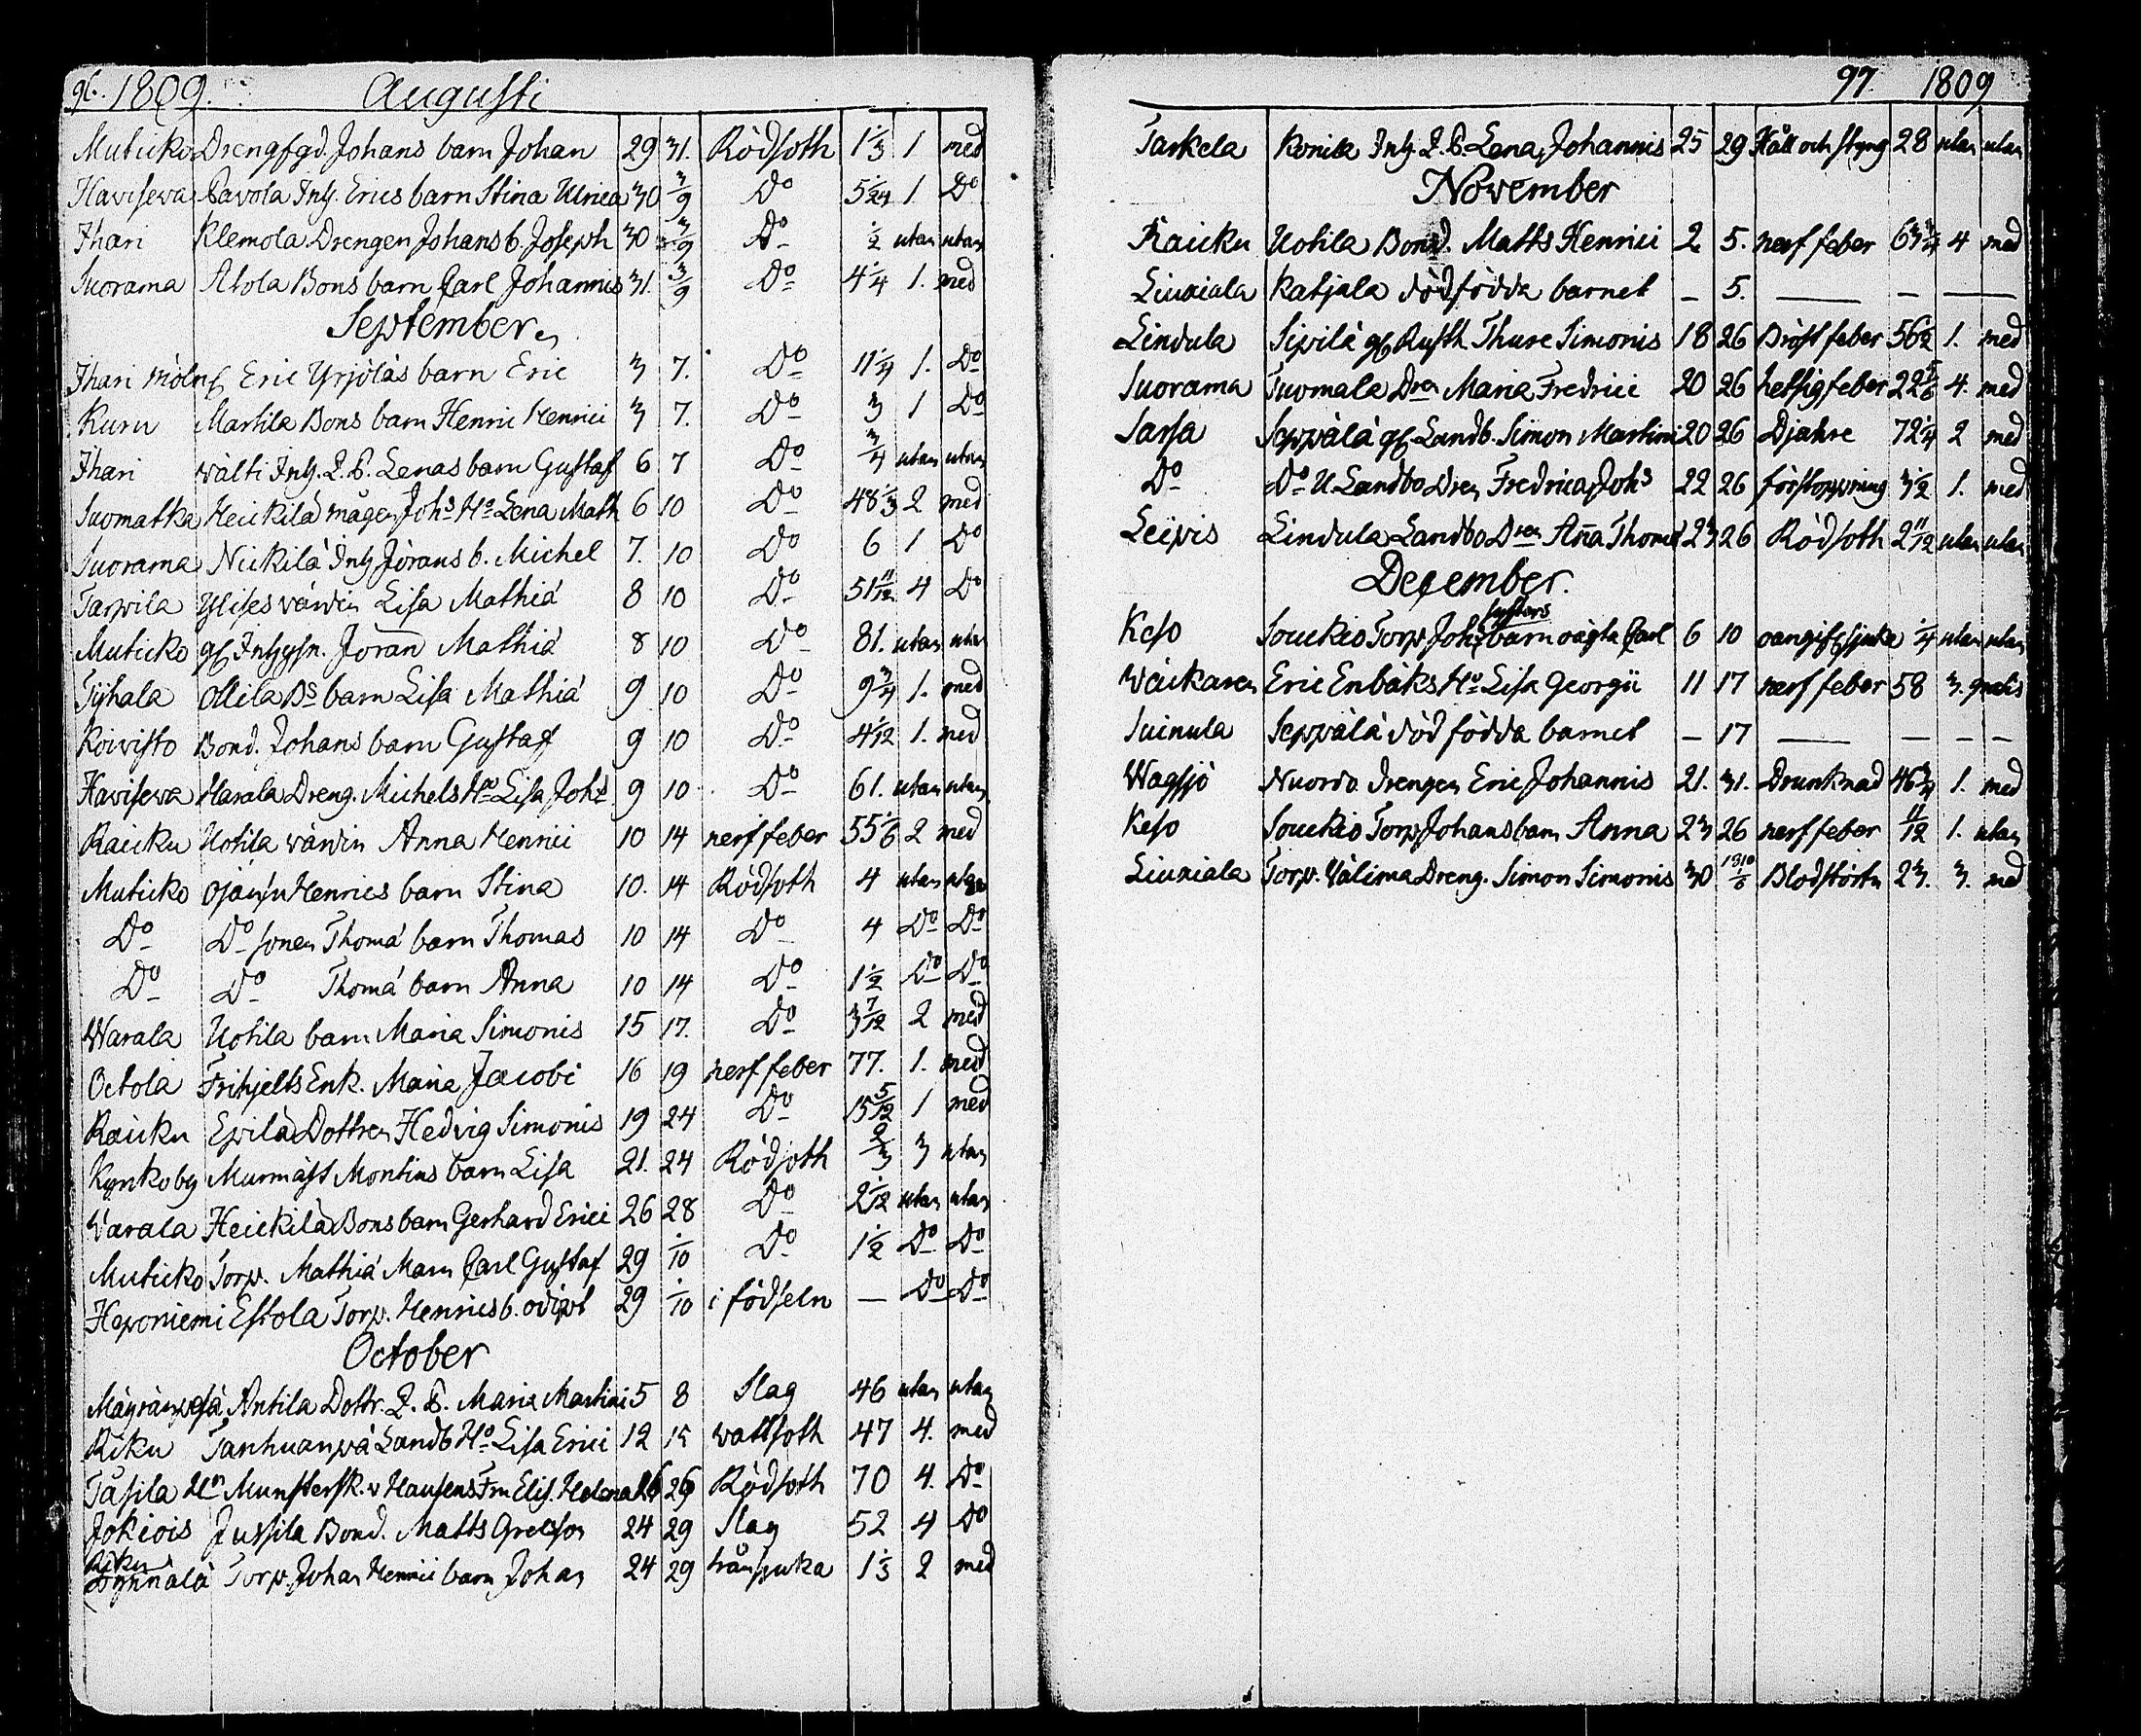 96. 1809. Augusti
Muticko Drengfgd. Johans barn Johan 29 31. Rödsoth 1 1/3 1 med
Havisewa Pavola Inh. Erics barn Stina Ulrica 30 3/9 Do 5 1/24 1 Do
Ihari Klemola Drengen Johans b. Joseph 30 3/9 Do 1/2 utan utan
Suorama Atola Bons barn Carl Johannis 31. 3/9 Do 4 1/4 1. med
September
Ihari möln Eric Yrjöläs barn Eric 3 7. Do 11 1/4 1. Do
Kuru Martila Bons barn Henric Henrici 3 7. Do 3 1 Do
Ihari wälti Inh. Q. P. Lenas barn Gustaf 6 7 Do 3/4 utan utan
Suomatka Heickilä mågen Johs Ho Lena Math 6 10 Do 48 1/3 2 med
Suorama Nickilä Inh Jörans b. Michel 7. 10 Do 6 1 Do
Tarpila Ylises värdin Lisa Mathiä 8 10 Do 51 11/12 4 Do
Muticko gl Inhysn. Joran Mathiä 8 10 Do 81. utan utan
Tyhala Ollila Bs barn Lisa Mathiä 9 10 Do 9 3/4 1. med
Koivisto Bond. Johans barn Gustaf 9 10 Do 4 1/12 1. med
Havisewa Harala Dreng. Michels Ho Lisa Johs 9 10 Do 61. utan utan
Raicku Uotila värdin Anna Henrici 10 14 nerffeber 55 1/6 2 med
Muticko Henrics barn Stina 10. 14 Rödsoth 4 utan utan
Do Do sonen Thomä barn Thomas 10 14 Do 4 Do Do
Do Do Thomä barn Anna 10 14 Do 1 1/2 Do Do
Warala Uotila barn Maria Simonis 15 17. Do 3 7/12 2 med
Octola Frihjelts Enk. Maria Jacobi 16 19 nerffeber 77. 1. med
Raicku Epilä Dottren Hedvig Simonis 19 24 Do 15 5/12 1 med
Kynkoby Murmäst Montins barn Lisa 21. 24 Rödsoth 2/3 3 utan
Varala Heickilä Bons barn Gerhard Erici 26 28 Do 2 1/12 utan utan
Muticko Torp. Mathiä Mans Carl Gustaf 29 1/10 Do 1 1/2 Do Do
Heponiemi Estola Torp. Henrics b. odöpt 29 1/10 i födseln — Do Do
October
Antila Dottr. Q. P. Maria Martini 5 8 Slag 46 utan utan
Riku Tanhuanpä Landb Ho Lisa Erici 12 15 wattsoth 47 4. med
Tasila Munstersk. v Hausens Fru Elis. Helena 16 26 Rödsoth 70 4. Do
Jokiois Jussila Bond. Matts Grelsson 24 29 Slag 52 4 Do
Riku
Torp. Johan Henrici barn Johan 24 29 1 1/3 2 med
97. 1809
Taskela Konila Inh. Q. P. Lena Johannis 25 29 Håll och styng 28 utan utan
November
Raicku Uotila Bond. Matts Henrici 2 5. nerffeber 63 1/4 4 med
Liuxiala Katjala dödfödda barnet — 5. — — —
Lindula Sipilä gl Rusth. Thure Simonis 18 26 Bröstfeber 56 1/2 1. med
Suorama Tuomala Dren Maria Fredrici 20 26 hetsigfeber 22 5/6 4. med
Sarsa Seppälä gl. Landb. Simon Martini 20 26 72 1/4 2 med
Do Do U. Landbo Dren Fredrica Johs 22 26 förstoppning 3 1/2 1. med
Leipis Lindula Landbo Dren Aña Thomæ 23 26 Rödsoth 2 11/12 utan utan
December.
Keso Souckio Torp. Johs systers barn oägta Carl 6 10 oangifl sjuka 1/4 utan utan
Wäickaren Eric Enbäks Ho Lisa Georgii 11 17 nerffeber 58 3. gratis
Suinula Seppälä dödfödda barnet — 17 — — — —
Wagsjö Nuordo drengen Eric Johannis 21. 31. Drunknad 46 3/4 1. med
Keso Souckio Torp Johans barn Anna 23 26 nerffeber 11/12 1. utan
Liuxiala Torp. Välima Dreng. Simon Simonis 30 1810 1/6 Blodstörtn 23. 3. med